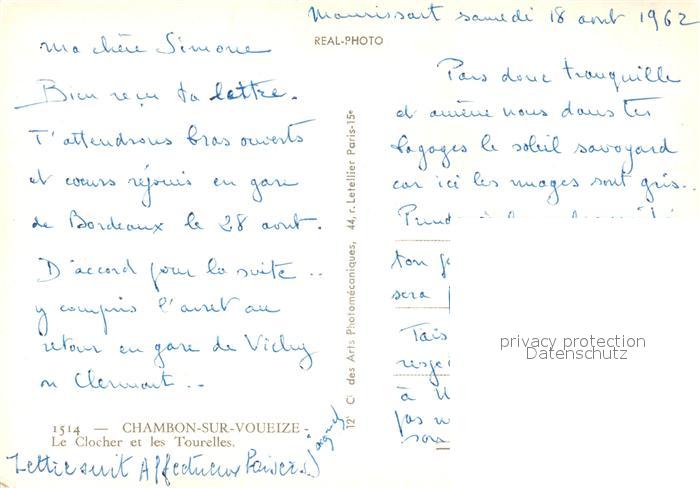 samedi 18 aout 1962
REAL-PHOTO
Ma chère Simone
Bien reçu ta lettre.
T'attendrons bras ouverts
et coeurs réjouis en gare
de Bordeaux le 28 aout.
D'accord pour la suite ..
y compris l'arret au
retour en gare de Vichy
ou Clermont ..
1514 — CHAMBON-SUR-VOUEIZE -
Le Clocher et les Tourelles.
Lettre suit Affectueux Baisers
12 Cie des Arts Photomécaniques, 44, r. Letellier Paris-15e
Pars donc tranquille
et amène nous dans tes
bagages le soleil savoyard
car ici les nuages sont gris..
ton
sera
Tais
à
pas
privacy protection
Datenschutz